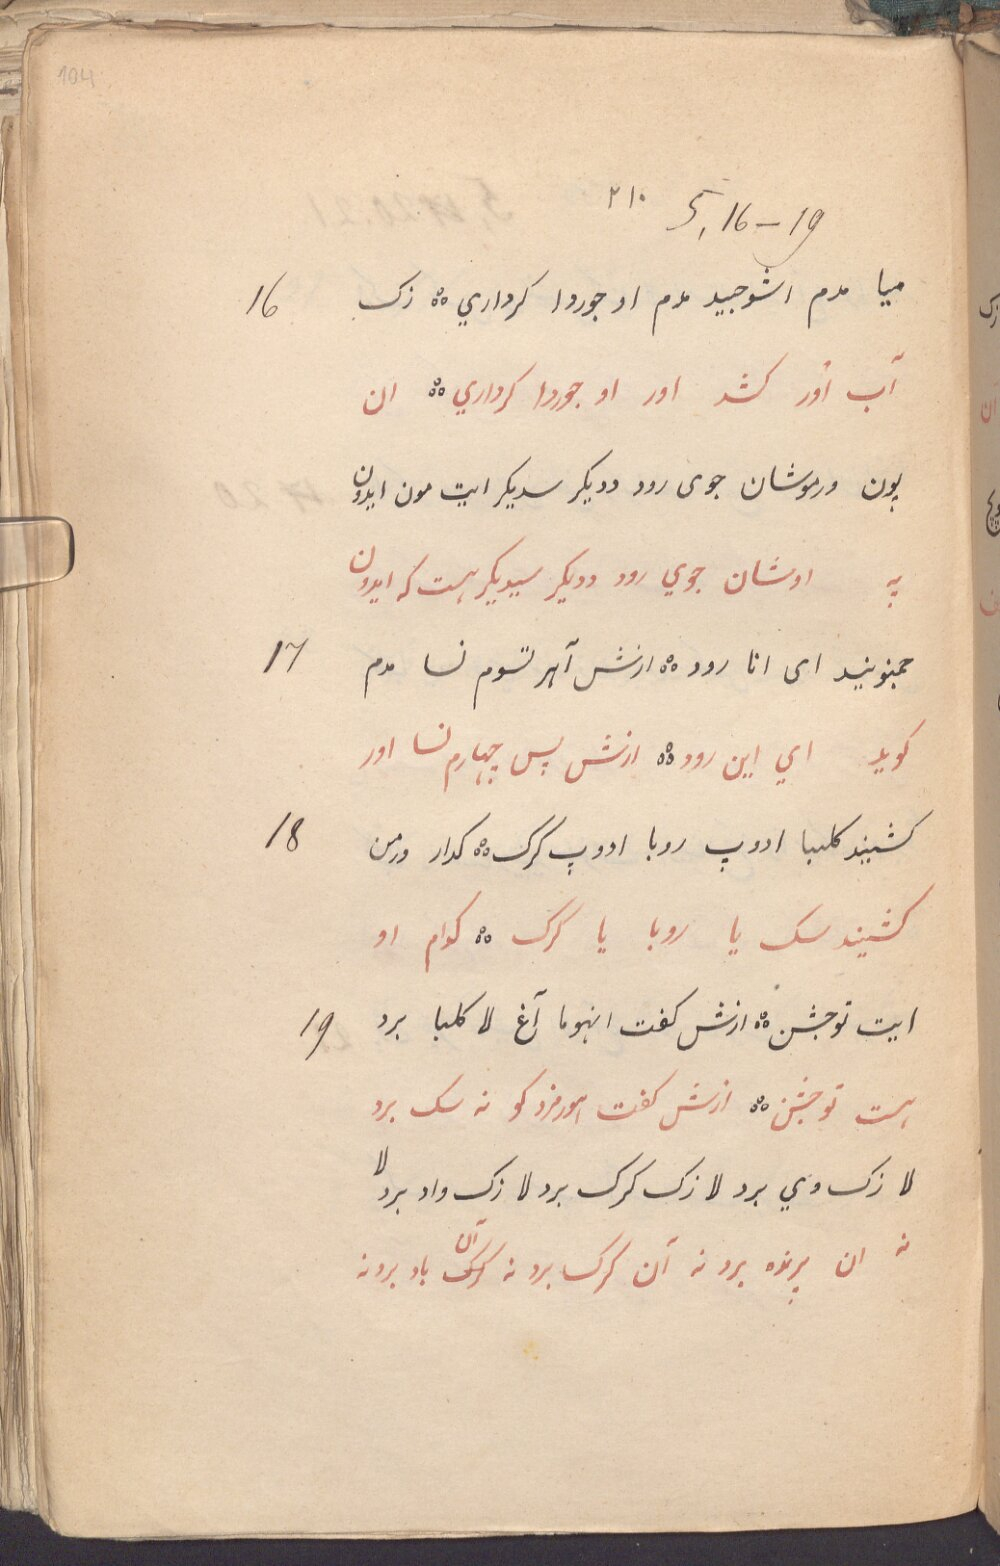 104
۲۱۰ 5, 16-19
میا مدم اشوجید مدم او جوردا کرداري ஃ زک 16
آب اور کشد اور او جوردا کرداري ஃ ان
پون ورموشان جوی رود ددیکر سدیکر ایت مون ایدون
په اوشان جوي رود ددیکر سیدیکر هست که ایدون
جمنونید ای انا رود ஃ ازش آهر تسوم نسا مدم 17
کوید اي این رود ஃ ازش پس چهارم نسا اور
کشیند کلبا ادوپ روبا ادوپ کرک ஃ کدار ورمن 18
کشیند سک یا روبا یا کرک ஃ کوام او
ایت توجشن ஃ ازش کفت انهوما آغ لا کلبا برد 19
هست توخشن ஃ ازش کفت اهورمزد کو نه سک برد
لا زک وي برد لا زک کرک برد لا زک واد برد لا
نه ان پرنده برد نه آن کرک برد نه آن باد برد نه